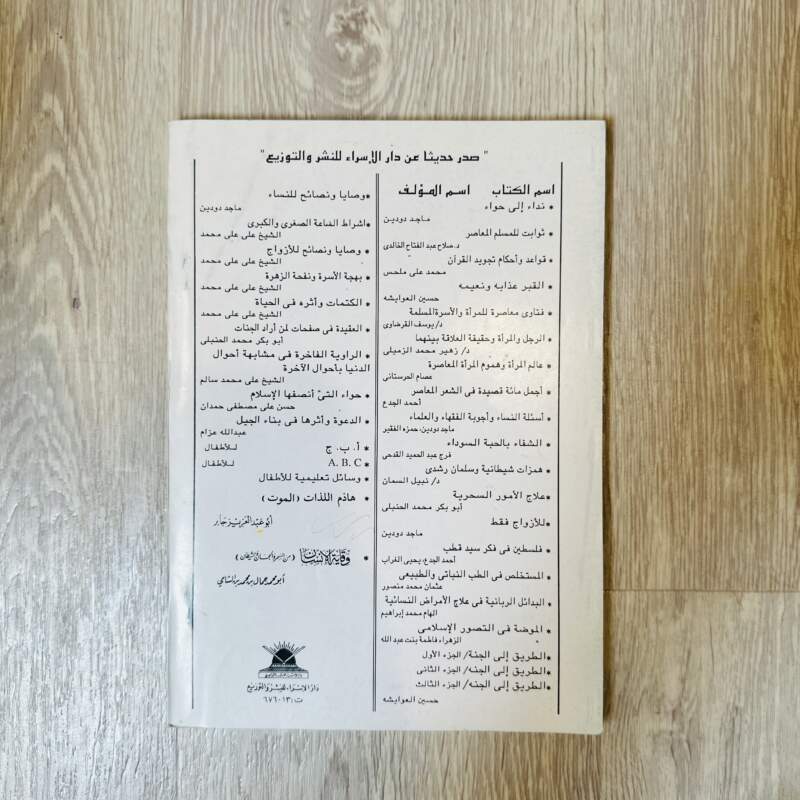 "صدر حديثا عن دار الإسراء للنشر والتوزيع"
اسم الكتاب اسم المؤلف
* نداء إلى حواء
ماجد دودين
* ثوابت للمسلم المعاصر
د. صلاح عبد الفتاح الخالدى
* قواعد وأحكام تجويد القرآن
محمد على ملحس
* القبر عذابه ونعيمه
حسين العوايشه
* فتاوى معاصرة للمرأة والأسرة المسلمة
د/يوسف القرضاوى
* الرجل والمرأة وحقيقة العلاقة بينهما
د/ زهير محمد الزميلى
* عالم المرأة وهموم المرأة المعاصرة
عصام الحرستانى
* أجمل مائة قصيدة فى الشعر المعاصر
أحمد الجدع
* أسئلة النساء وأجوبة الفقهاء والعلماء
ماجد دودين، حمزه الفقير
* الشفاء بالحبة السوداء
فرج عبد الحميد القدحى
* همزات شيطانية وسلمان رشدى
د/ نبيل السمان
* علاج الأمور السحرية
أبو بكر محمد الحنبلى
* للأزواج فقط
ماجد دودين
* فلسطين فى فكر سيد قطب
أحمد الجدع، يحيى الغراب
* المستخلص فى الطب النباتى والطبيعى
عثمان محمد منصور
* البدائل الربانية فى علاج الأمراض النسائية
الهام محمد إبراهيم
* الموضة فى التصور الإسلامى
الزهراء فاطمة بنت عبد الله
* الطريق إلى الجنة/ الجزء الأول
* الطريق إلى الجنه/ الجزء الثانى
* الطريق إلى الجنه/ الجزء الثالث
حسين العوايشه
* وصايا ونصائح للنساء
ماجد دودين
* اشراط الساعة الصغرى والكبرى
الشيخ على على محمد
* وصايا ونصائح للأزواج
الشيخ على على محمد
* بهجة الأسرة ونفحة الزهرة
الشيخ على على محمد
* الكتمات وأثره فى الحياة
الشيخ على على محمد
* العقيدة فى صفحات لمن أراد الجنات
أبو بكر محمد الحنبلى
* الراوية الفاخرة فى مشابهة أحوال
الدنيا بأحوال الآخرة
الشيخ على محمد سالم
* حواء التىّ أنصفها الإسلام
حسن على مصطفى حمدان
* الدعوة وأثرها فى بناء الجيل
عبدالله عزام
* أ. ب. ج للأطفال
* A. B. C للأطفال
* وسائل تعليمية للأطفال
* هاذم اللذات (الموت)
أبو عبد العزيز جابر
* وقاية الإنسان
دار الإسراء للنشر والتوزيع
ت: ٦٧٦٠١٣